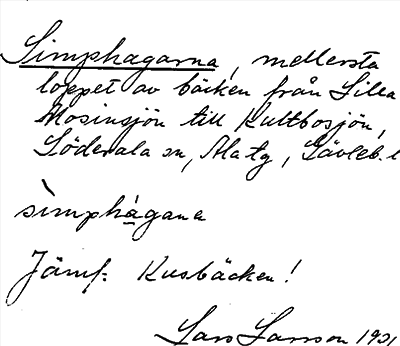 Simphagarna, mellersta
loppet av bäcken från Lilla
Mosinsjön till Kultbosjön,
Söderala sn, Ala tg, Gävleb. l
simphàgana
Jämf. Kusbäcken!
Lars Larsson 1931